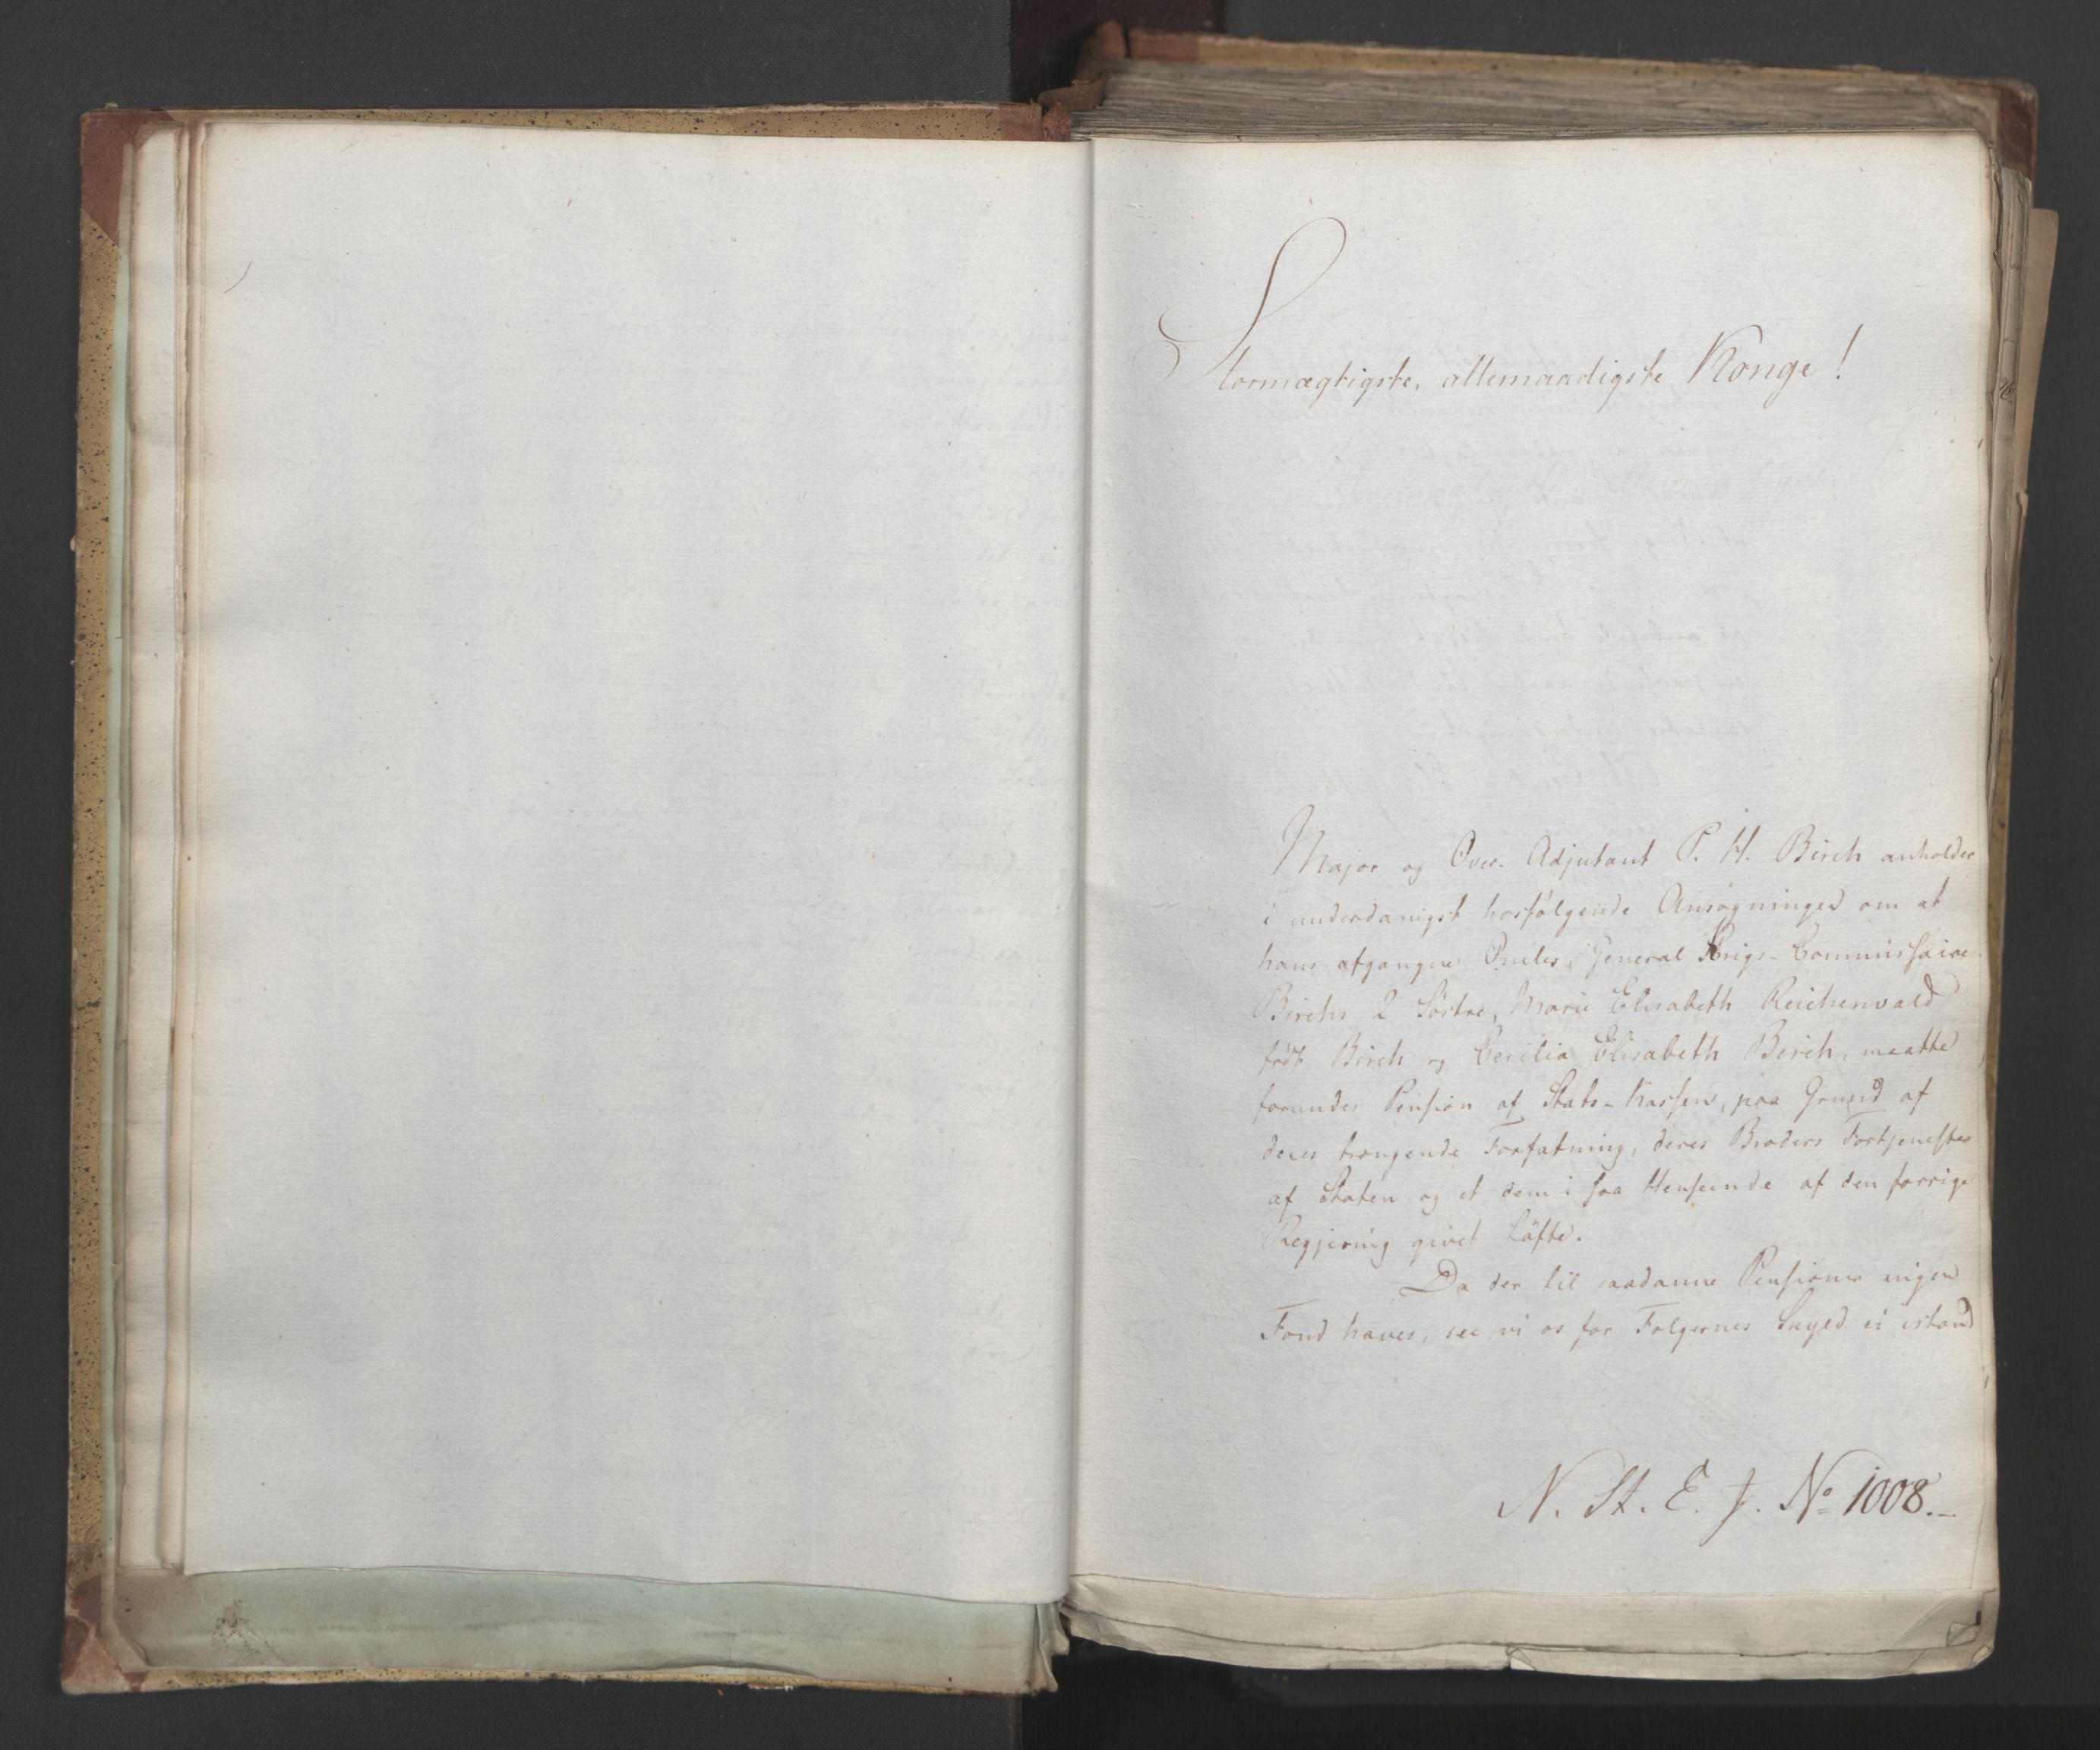 Stormægtigste, allernaadigste Konge!
Major og Over-Adjutant P. H. Birch anholder
i underdanigst hosfølgende Ansøgninger om at
hans afgangne Onkles, General Krigs-Commissaire
Birchs 2 Söstre, Marie Elisabeth Reichenvald
födt Birch og Cecilia Elisabeth Birch, maatte
forundes Pension af Stats-Kassen, paa Grund af
deres trængende Forfatning, deres Broders Fortjenester
af Staten og et dem i saa Henseende af den forrige
Regjering givet Löfte.
Da der til saadanne Pensioner ingen
Fond haves, see vi os for Følgernes Skyld ei istand
N. St. E. J. No 1008.